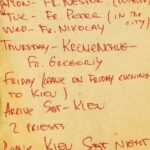 MON - FR. NESTOR (OUTSIDE)
TUE - FR. PETER (IN THE
CITY)
WED - FR. NIKOLAY
THURSDAY - KREMENCHUG -
FR. GREGORIY
FRIDAY (LEAVE ON FRIDAY EVENING
TO KIEV)
ARRIVE SAT - KIEV
2 PRIESTS
KIEV SAT NIGHT